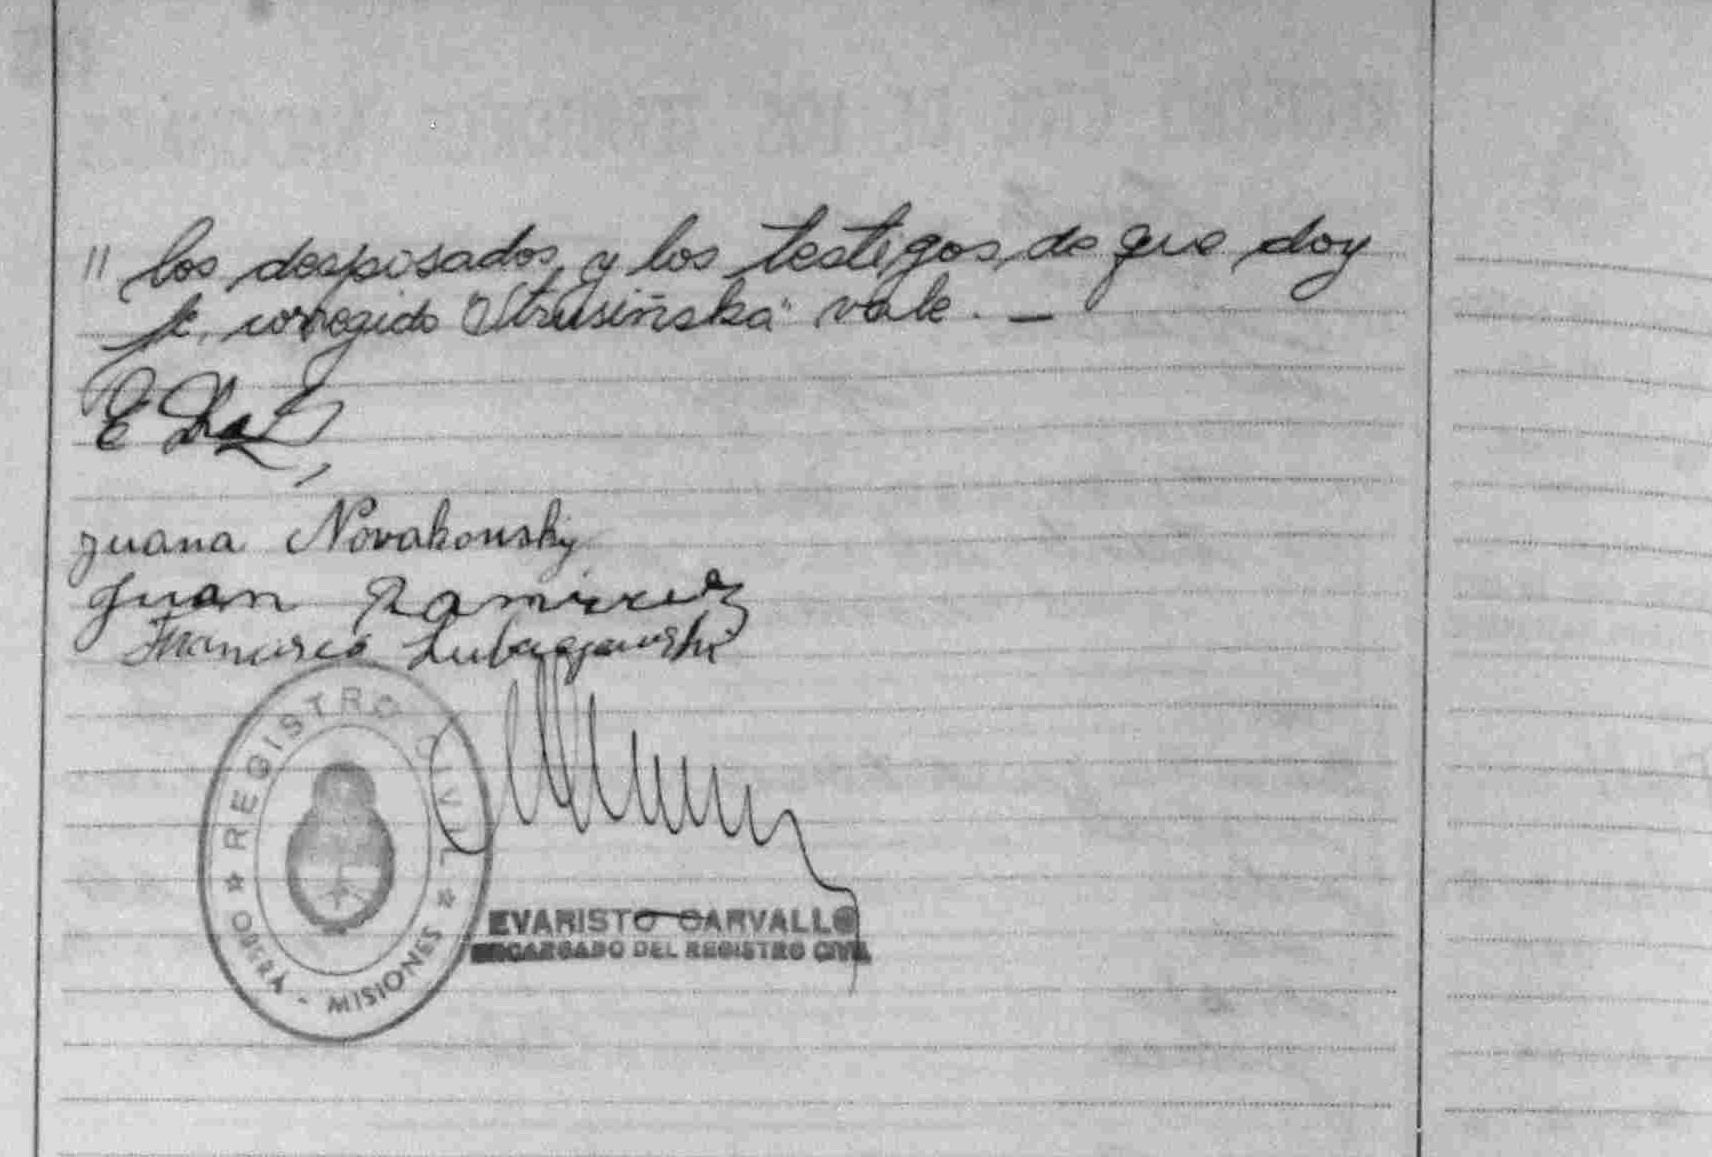 " los desposados, y los testigos, de que doy
fe, corregido "Strusiñska" vale. —
E Diaz
Juana Novakouski
Juan Ramirez
Francisco
REGISTRO CIVIL
OBERÁ - MISIONES
EVARISTO CARVALLO
ENCARGADO DEL REGISTRO CIVIL